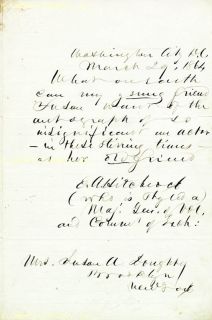 Washington City, D.C.
March 29, 1864
What on earth
can my young friend
Susan want of the
autograph of so
insignificant an actor
- in these stirring times -
as her old friend
E A Hitchcock
(who is styled a
Maj. Gen. of Vol.
and Comm. of Exch:
Mrs. Susan A.
Brooklyn
New York